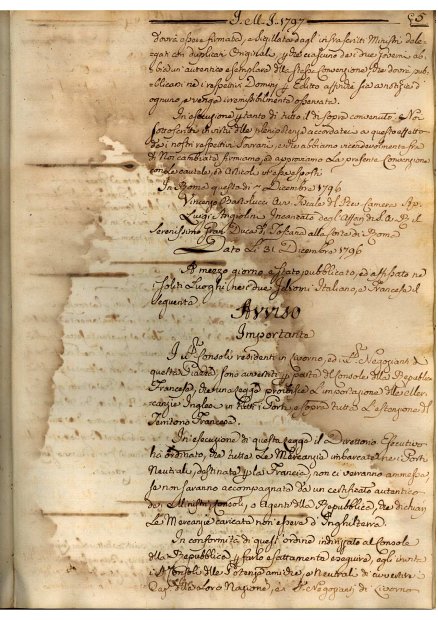 J. M. J. 1797
dovrà essere firmata, e sigillata dagl'infrascritti Ministri dele-
gati con duplicati Originali, perche ciascuno dei due Governi ab-
bia un'autentico esemplare della stessa Convenzione, che dovrà pub-
blicarsi nei respettivi Dominj per Editto affinchè sia nota ad
ognuno, e venga irremissibilmente osservata.
In esecuzione pertanto di tutto il disopra convenuto, Noi
sottoscritti in virtù delle plenipotenze accordateci a quest'effetto
da i nostri respettivi Sovrani, e che abbiamo vicendevolmente fra
di Noi cambiate, firmiamo, ed approviamo la presente Convenzione
come, ed Articoli, ut espresso
In Roma questo dì 7 Decembre 1796
Vincenzo Bartolucci Avv. Fiscale del Rev. Camera Ap.
Luigi Angiolini Incaricato degli Affari di S. A. R. il
Serenissimo Gran Duca di Toscana alla Corte di Roma
Dato Li 31 Dicembre 1796
A mezzo giorno, è stato pubblicato, ed affissato ne
i soliti Luoghi, nei due Idiomi Italiano, e Francese il
seguente
Avviso
Importante
I Consoli residenti in Livorno, ed i Negozianti di
questa Piazza sono avvertiti per parte del Console della Repubblica
Francese, che una Legge proibisce L'importazione delle Mer-
canzie Inglesi in tutti i Porti, e sopra tutta L'estensione del
Territorio Francese.
In esecuzione di questa Legge il Direttorio Esecutivo
ha ordinato, che tutte Le Mercanzie imbarcate nei Porti
Neutrali, destinate per la Francia, non ci verranno ammesse
se non saranno accompagnate da un certificato autentico
dei Ministri, Consoli, o Agenti della Repubblica, che dichiari
Le Mercanzie caricate non essere d'Inghilterra.
In conformità di quest'ordine indirizzato al Console
della Repubblica per farlo esattamente eseguire, egli invita
i Consoli delle Potenze amiche, e Neutrali di avvertire i
Cap. della loro Nazione, e i Negozianti di Livorno